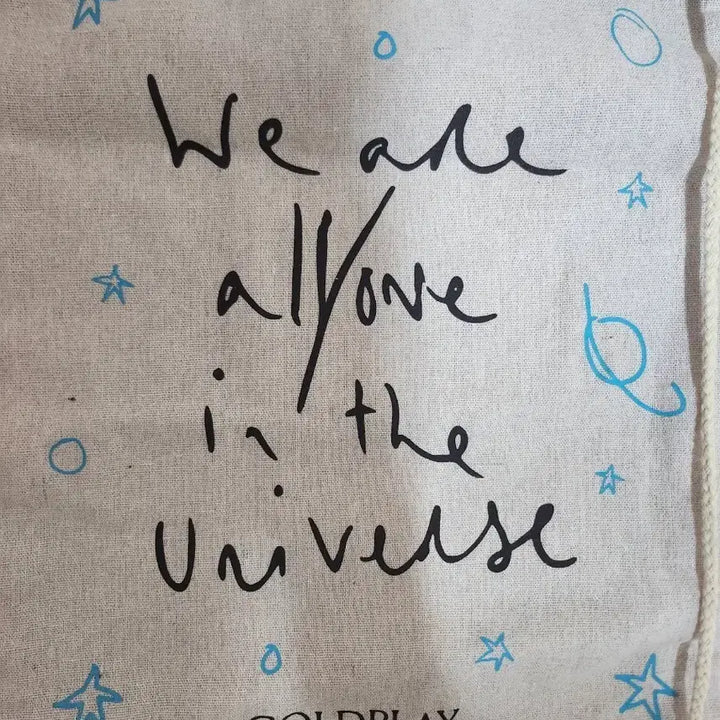 We are
all/one
in the
Universe
COLDPLAY